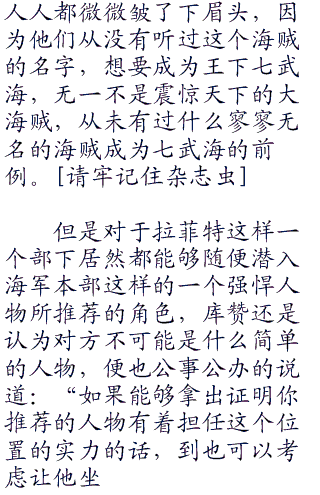 人人都微微皱了下眉头，因
为他们从没有听过这个海贼
的名字，想要成为王下七武
海，无一不是震惊天下的大
海贼，从未有过什么寥寥无
名的海贼成为七武海的前
例。[请牢记住杂志虫]
但是对于拉菲特这样一
个部下居然都能够随便潜入
海军本部这样的一个强悍人
物所推荐的角色，库赞还是
认为对方不可能是什么简单
的人物，便也公事公办的说
道：“如果能够拿出证明你
推荐的人物有着担任这个位
置的实力的话，到也可以考
虑让他坐